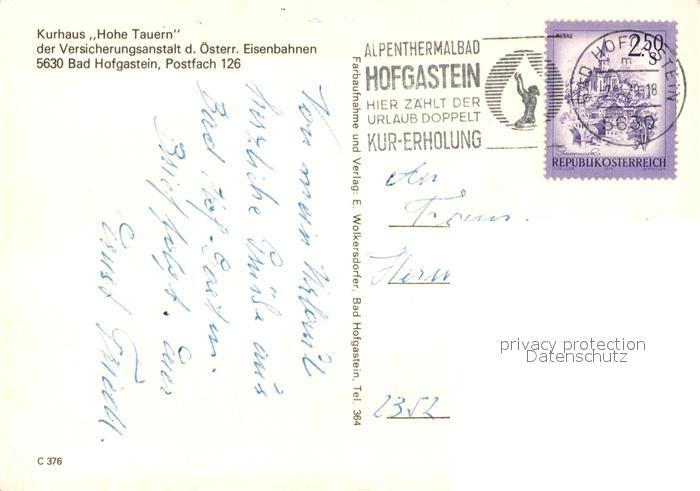 Kurhaus „Hohe Tauern"
der Versicherungsanstalt d. Österr. Eisenbahnen
5630 Bad Hofgastein, Postfach 126
ALPENTHERMALBAD
HOFGASTEIN
HIER ZÄHLT DER
URLAUB DOPPELT
KUR-ERHOLUNG
MURAU
2.50
S
BAD HOFGASTEIN
m
-18
5630
REPUBLIK ÖSTERREICH
Farbaufnahme und Verlag: E. Wolkersdorfer, Bad Hofgastein, Tel. 364
Vom mein Urlaub
herzliche Grüße aus
Bad Hof-Gastein.
Brief folgt. Euer
Ernst
An
Herrn
2352
privacy protection
Datenschutz
C 376